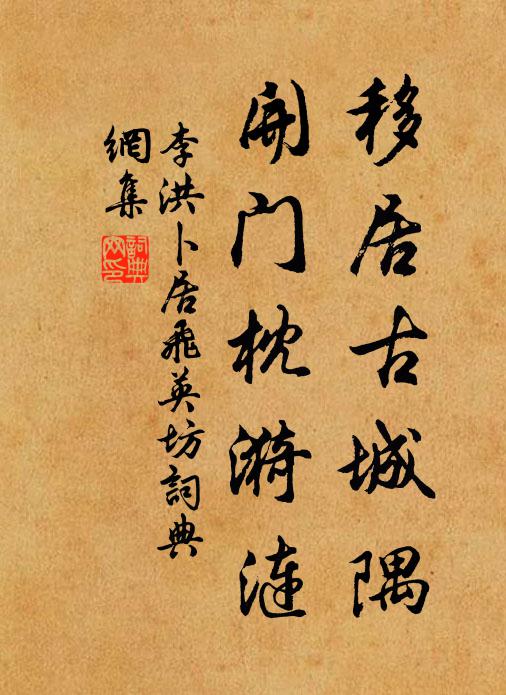 移居古城隅
開门枕漪漣
李洪卜居飛英坊詞典
網集
詞典
网印